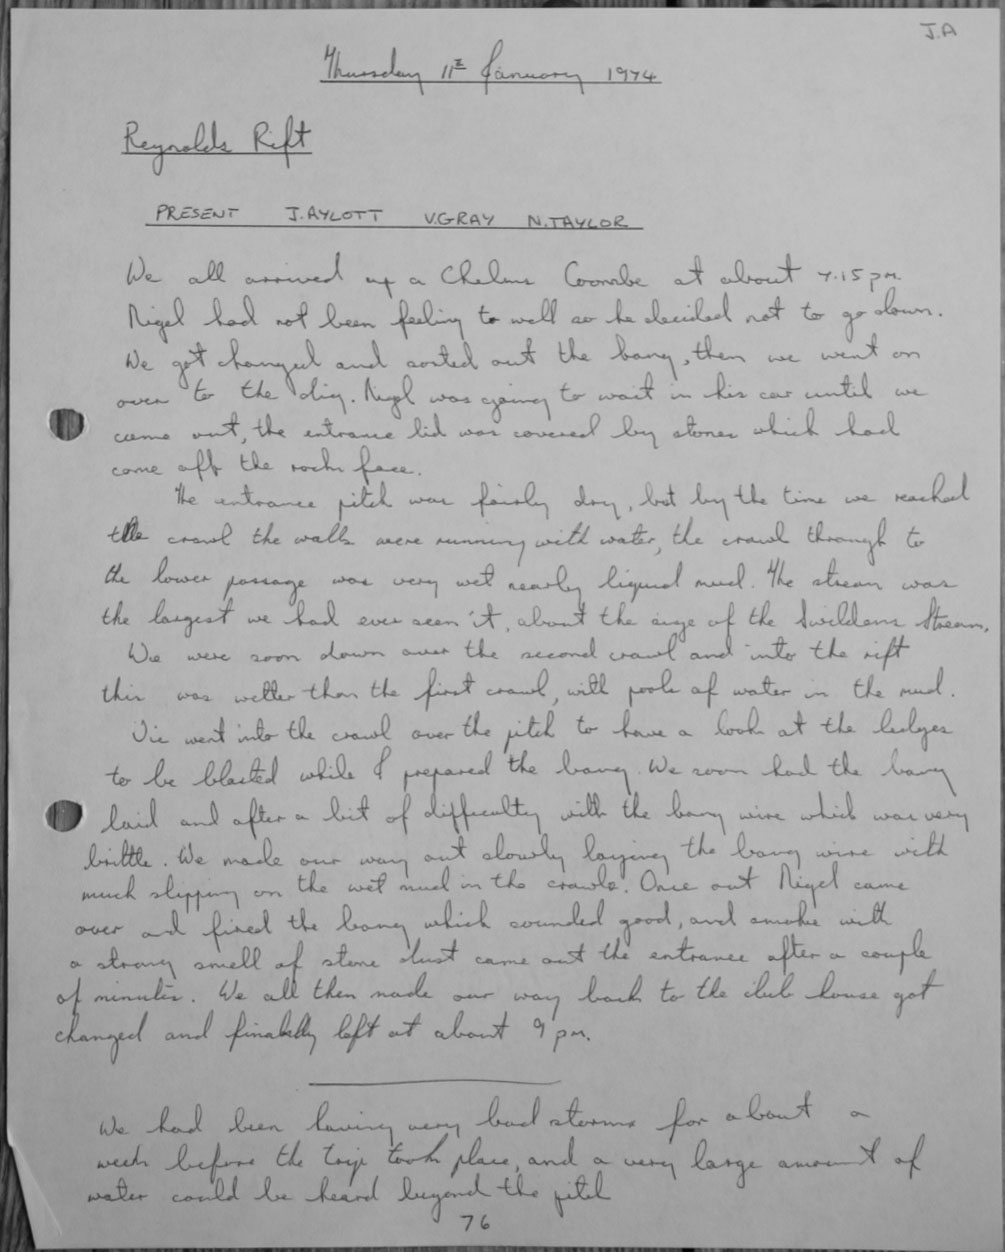 J.A
Thursday 11th January 1974
Reynolds Rift
PRESENT J.AYLOTT V.GRAY N.TAYLOR
We all arrived up a Chelms Coombe at about 7.15 pm.
Nigel had not been feeling to well so he decided not to go down.
We got changed and sorted out the bang, then we went on
over to the dig. Nigel was going to wait in his car until we
came out, the entrance lid was covered by stones which had
come off the rock face.
The entrance pitch was fairly dry, but by the time we reached
the crawl the walls were running with water, the crawl through to
the lower passage was very wet nearly liquid mud. The stream was
the largest we had ever seen it, about the size of the Swildons Stream.
We were soon down over the second crawl and into the rift
this was wetter than the first crawl, with pools of water in the mud.
Vic went into the crawl over the pitch to have a look at the ledges
to be blasted while I prepared the bang. We soon had the bang
laid and after a bit of difficulty with the bang wire which was very
brittle. We made our way out slowly laying the bang wire with
much slipping on the wet mud in the crawls. Once out Nigel came
over and fired the bang which sounded good, and smoke with
a strong smell of stone dust came out the entrance after a couple
of minutes. We all then made our way back to the club house got
changed and finally left at about 9 pm.
We had been having very bad storms for about a
week before the trip took place, and a very large amount of
water could be heard beyond the pitch
76